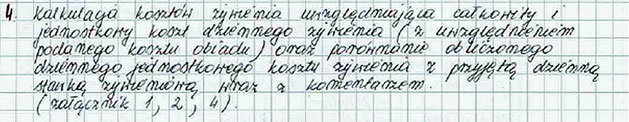 4. Kalkulacja kosztów żywienia uwzględniająca całkowity i
jednostkowy koszt dziennego żywienia (z uwzględnieniem
podanego kosztu obiadu) oraz porównanie obliczonego
dziennego jednostkowego kosztu żywienia z przyjętą dzienną
stawką żywieniową wraz z komentarzem.
(załącznik 1, 2, 4).